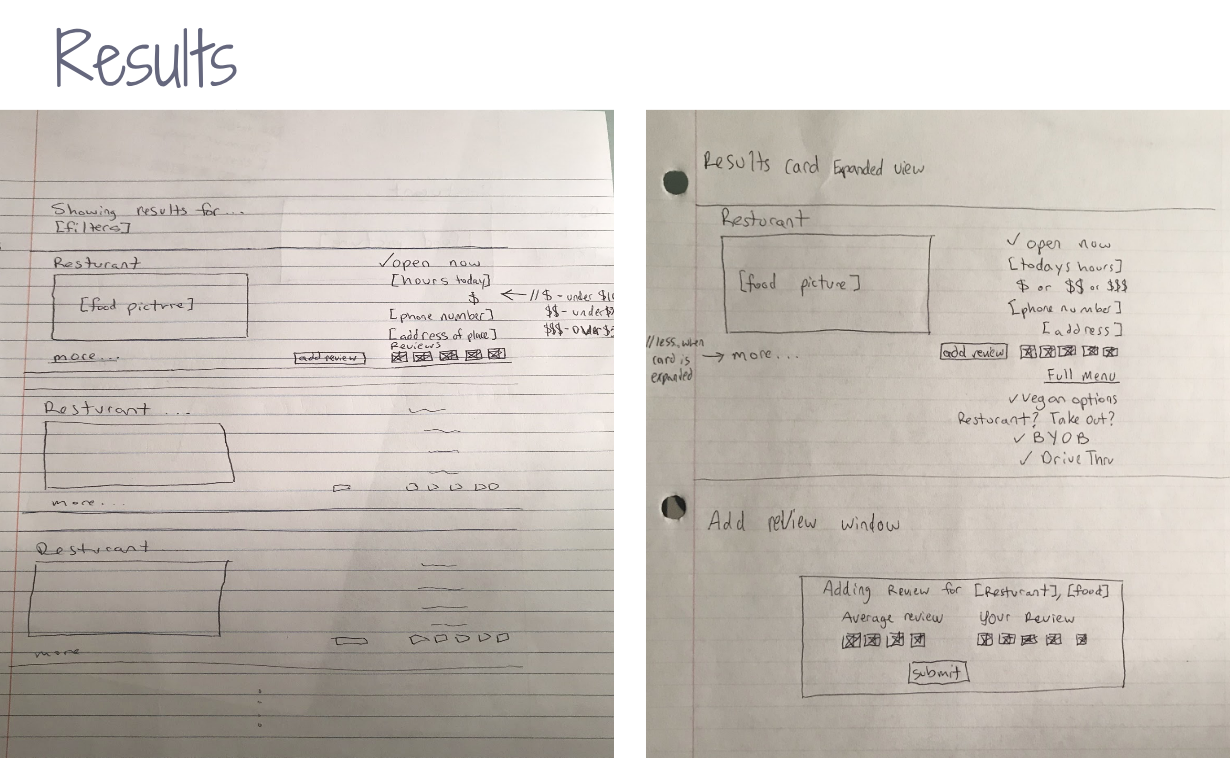 Results
Showing results for...
[filters]
Resturant
[food picture]
more...
add review
✓open now
[hours today]
$
[phone number]
[address of place]
Reviews
← // $ - under $10
$$ - under
$$$ - over
Resturant ...
more...
Resturant
more
Results Card Expanded view
Resturant
[food picture]
//less, when
card is
expanded
→ more...
✓ open now
[todays hours]
$ or $$ or $$$
[phone number]
[address]
add review
Full Menu
✓ Vegan options
Resturant? Take out?
✓ BYOB
✓ Drive Thru
Add review window
Adding Review for [Resturant], [food]
Average review Your Review
submit